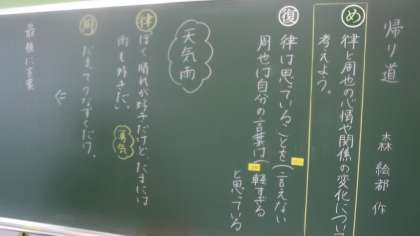 帰り道　森 絵都 作
め 律と周也の心情や関係の変化について
考えよう。
復 律は思っていることを言えない
周也は自分の言葉は軽すぎる
と思っている
天気雨
律 ぼく、晴れが好きだけど、たまには
雨も好きだ。
勇気
周 だまってうなずくだけ。
最後に言葉